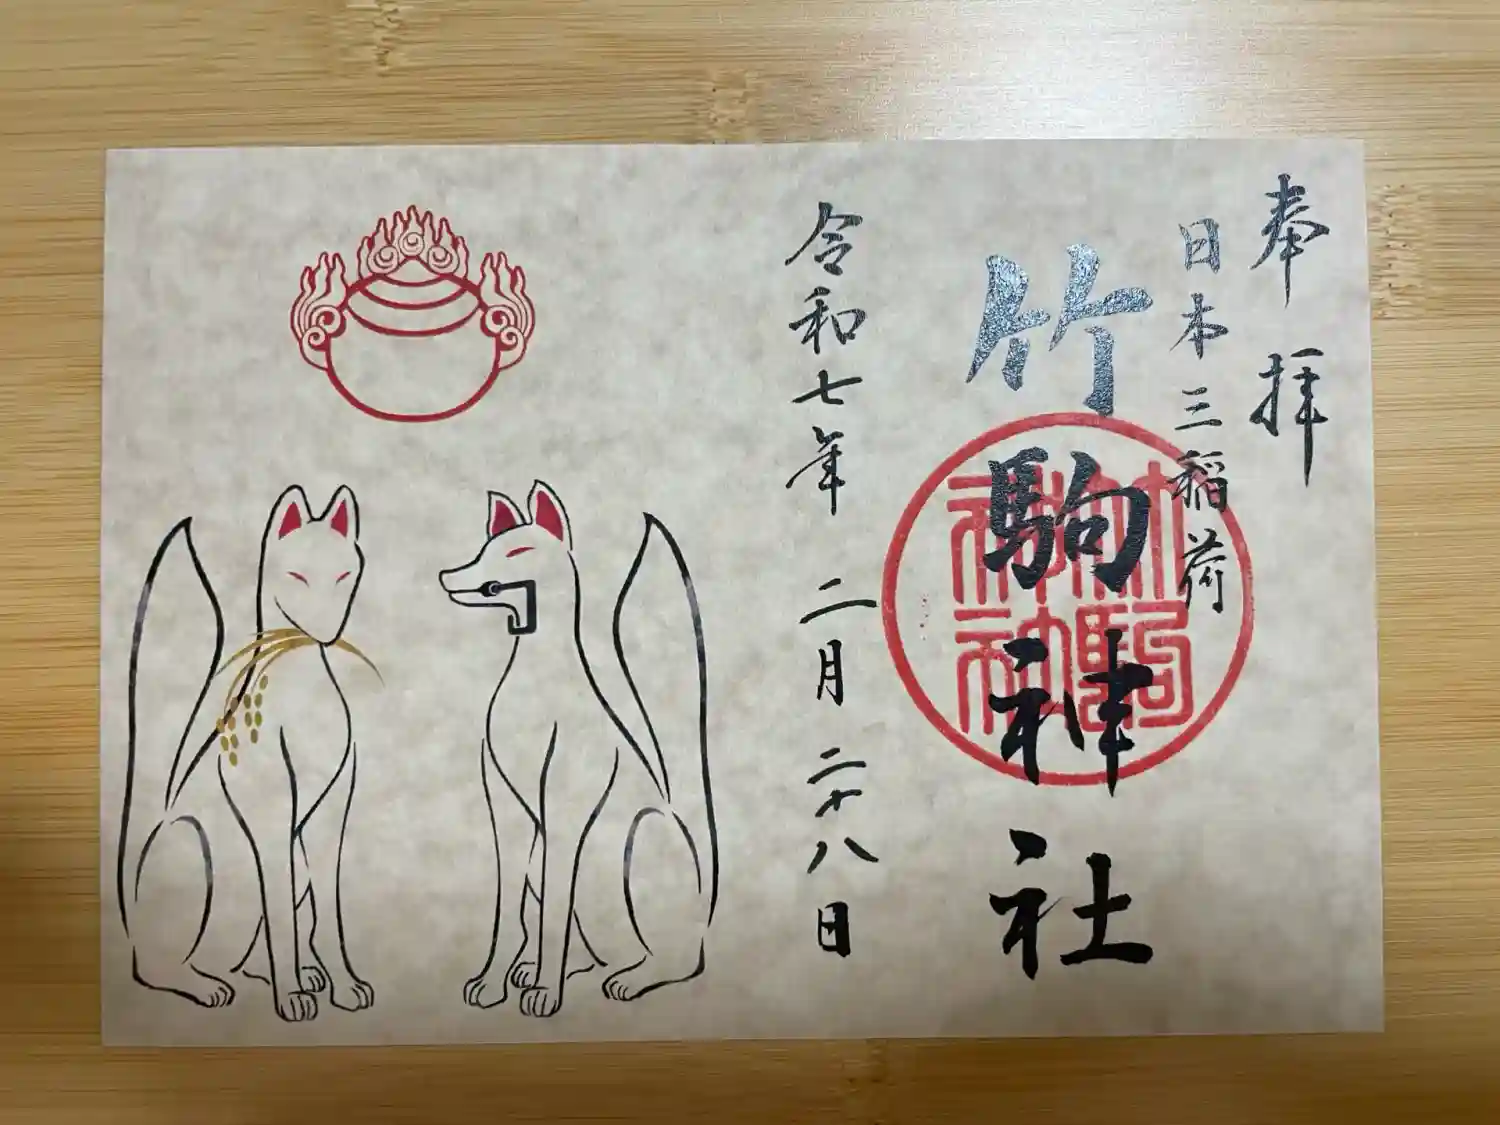 奉拝
日本三稲荷
竹駒神社
竹駒神社
令和七年二月二十八日